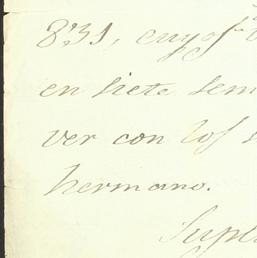 831, cuyos
en siete sem
ver con los
hermano.
Supl